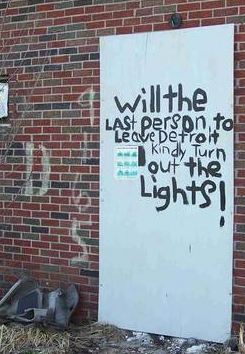 will the
LAst person to
Leave Detroit
kindly Turn
out the
Lights!